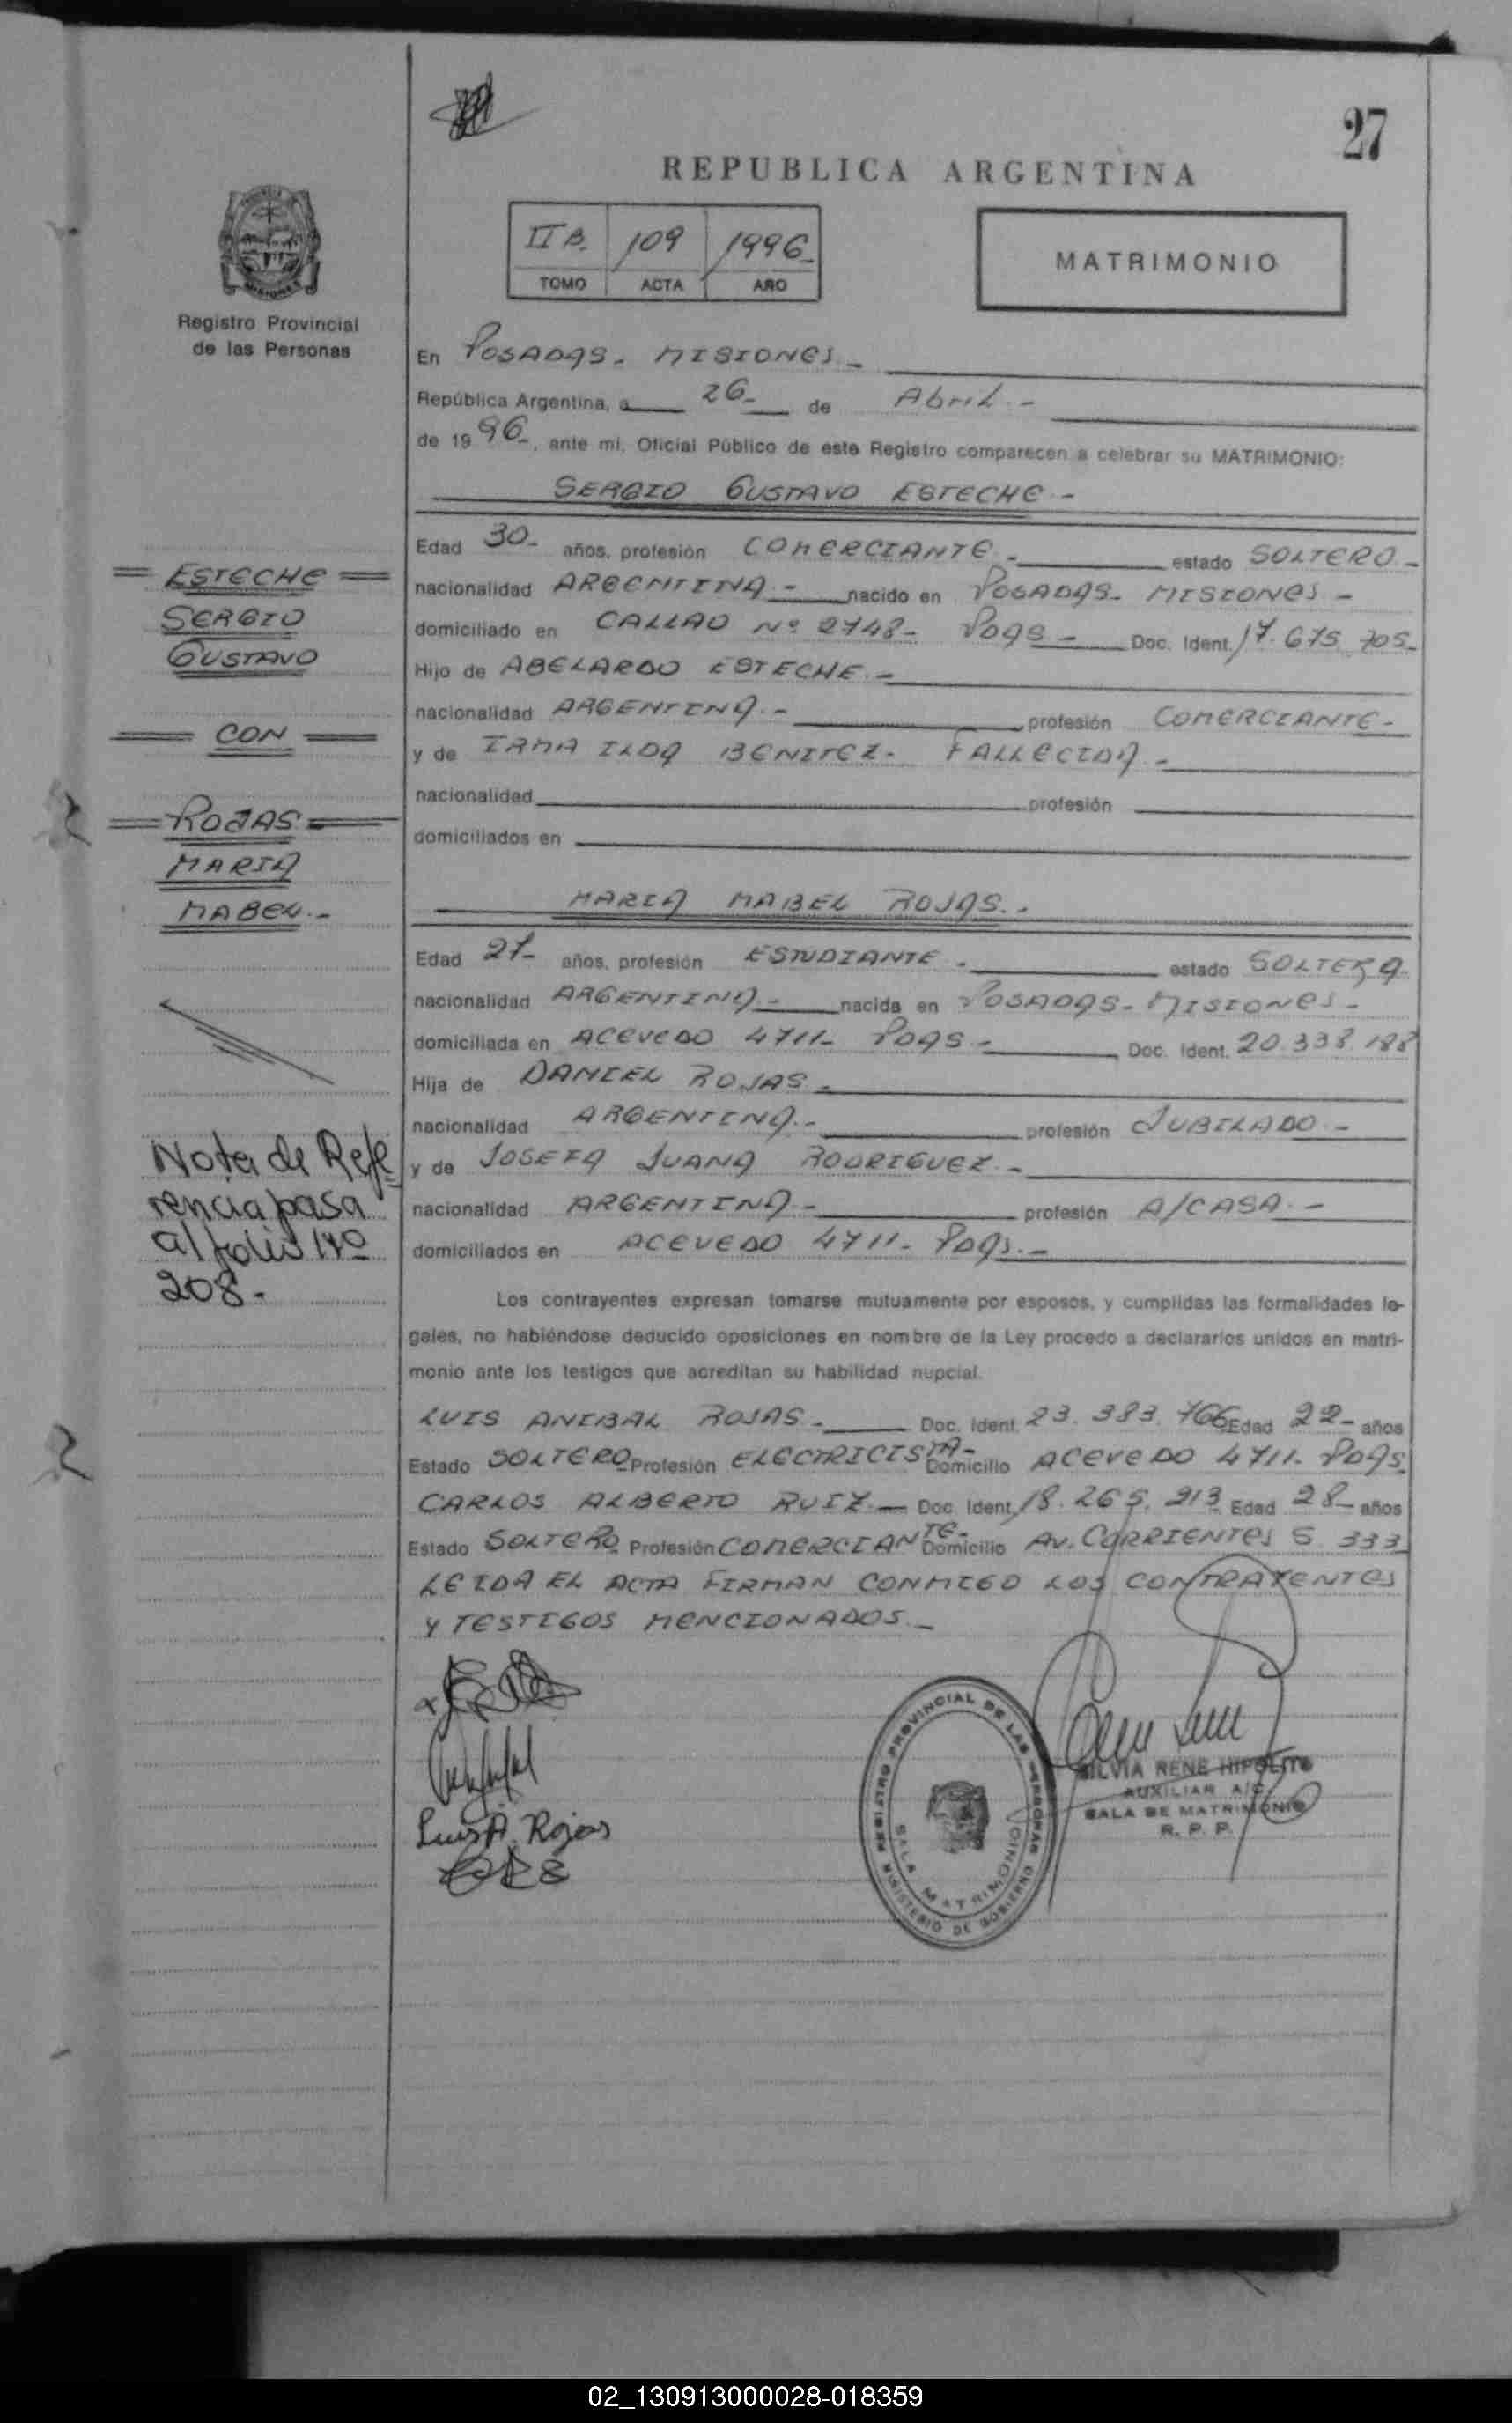 27
REPUBLICA ARGENTINA
II B. 109 1996
TOMO ACTA AÑO
MATRIMONIO
MISIONES
Registro Provincial
de las Personas
En POSADAS - MISIONES -
República Argentina, a 26 - de Abril -
de 19 96 -, ante mí, Oficial Público de este Registro comparecen a celebrar su MATRIMONIO:
SERGIO GUSTAVO ESTECHE -
Edad 30 - años, profesión COMERCIANTE - estado SOLTERO -
nacionalidad ARGENTINA - nacido en POSADAS - MISIONES -
domiciliado en CALLAO Nº 2748 - Pdas - Doc. Ident. 17.675.705 -
Hijo de ABELARDO ESTECHE -
nacionalidad ARGENTINA - profesión COMERCIANTE -
y de IRMA ILDA BENITEZ - FALLECIDA -
nacionalidad profesión
domiciliados en
MARIA MABEL ROJAS -
Edad 27 - años, profesión ESTUDIANTE - estado SOLTERA
nacionalidad ARGENTINA - nacida en POSADAS - MISIONES -
domiciliada en ACEVEDO 4711 - Pdas - Doc. Ident. 20.338.188
Hija de DANIEL ROJAS -
nacionalidad ARGENTINA - profesión JUBILADO -
y de JOSEFA JUANA RODRIGUEZ -
nacionalidad ARGENTINA - profesión A/CASA -
domiciliados en ACEVEDO 4711 - Pdas. -
Los contrayentes expresan tomarse mutuamente por esposos, y cumplidas las formalidades le-
gales, no habiéndose deducido oposiciones en nombre de la Ley procedo a declararlos unidos en matri-
monio ante los testigos que acreditan su habilidad nupcial.
LUIS ANIBAL ROJAS - Doc. Ident. 23.383.766 Edad 22 - años
Estado SOLTERO Profesión ELECTRICISTA - Domicilio ACEVEDO 4711 - Pdas
CARLOS ALBERTO RUIZ - Doc. Ident. 18.265.213 Edad 28 - años
Estado SOLTERO Profesión COMERCIANTE - Domicilio AV. CORRIENTES S. 333
LEIDA EL ACTA FIRMAN CONMIGO LOS CONTRAYENTES
Y TESTIGOS MENCIONADOS. -
ESTECHE
SERGIO
GUSTAVO
CON
ROJAS
MARIA
MABEL. -
Nota de Refe
rencia pasa
al folio Nº
208 -
Luis A. Rojas
REGISTRO PROVINCIAL DE LAS PERSONAS
MINISTERIO DE GOBIERNO
SALA MATRIMONIO
SILVIA RENE HIPOLITO
AUXILIAR A/C
SALA DE MATRIMONIO
R. P. P.
02_130913000028-018359